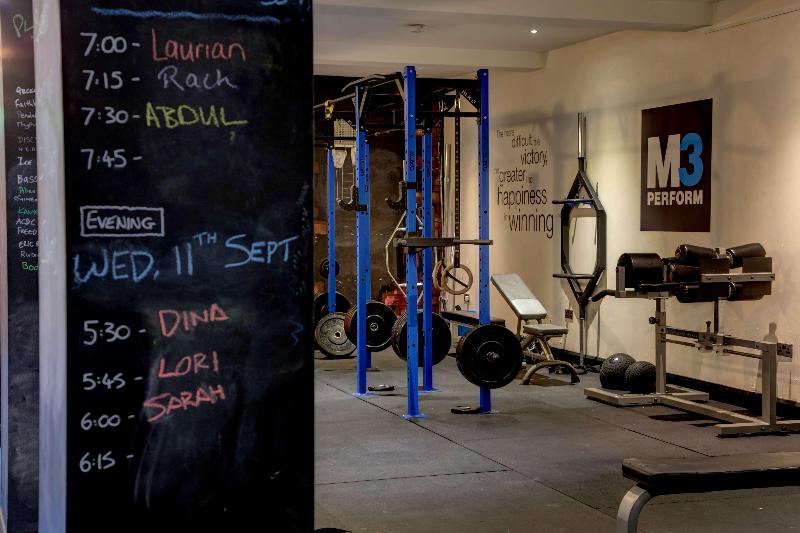 7:00 - Laurian
7:15 - Rach
7:30 - ABDUL
7:45 -
EVENING
WED. 11TH SEPT
5:30 - DINA
5:45 - LORI
6:00 - SARAH
6:15 -
The more
difficult the
victory,
the
greater the
happiness
in
winning
M3
PERFORM
PL
Faith
DISC
ICE
BASS
ACDC
FREED
ERIC
BOO